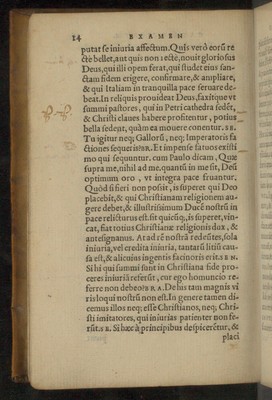 14 EXAMEN
putat se iniuria affectum. Quis verò eorū re
ctè bellet, aut quis non rectè, nouit gloriosus
Deus, qui illi opem ferat, qui studet eius san-
ctam fidem erigere, confirmare, & ampliare,
& qui Italiam in tranquilla pace seruare de-
beat. In reliquis prouideat Deus, faxítque vt
summi pastores, qui in Petri cathedra sedēt,
& Christi claues habere profitentur, potius
bella sedent, quàm ea mouere conentur. SA.
Tu igitur neq; Gallorū, neq; Imperatoris fa
ctiones sequeris? BR. Et impense fatuos existi
mo qui sequuntur. cum Paulo dicam, Quæ
supra me, nihil ad me. quantū in me sit, Deū
optimum oro, vt integra pace fruantur,
Quòd si fieri non possit, is superet qui Deo
placebit, & qui Christianam religionem au-
gere debet, & illustrissimum Ducē nostrū in
pace relicturus est. sit quicūq;, is superet, vin-
cat, fiat totius Christianæ religionis dux, &
antesignanus. At ad rē nostrā redeūtes, sola
iniuria, vel credita iniuria, tantarū litiū cau-
sa est, & alicuius ingentis facinoris erit. SEN.
Si hi qui summi sunt in Christiana fide pro-
ceres iniuriā referūt, cur ego homuncio re-
ferre non debeo? BRA. De his tam magnis vi
ris loqui nostrū non est. In genere tamen di-
cemus illos neq; esse Christianos, neq; Chri-
sti imitatores, qui iniurias patienter non fe-
rūt. SA. Si hæc à principibus despicerētur, &
placi